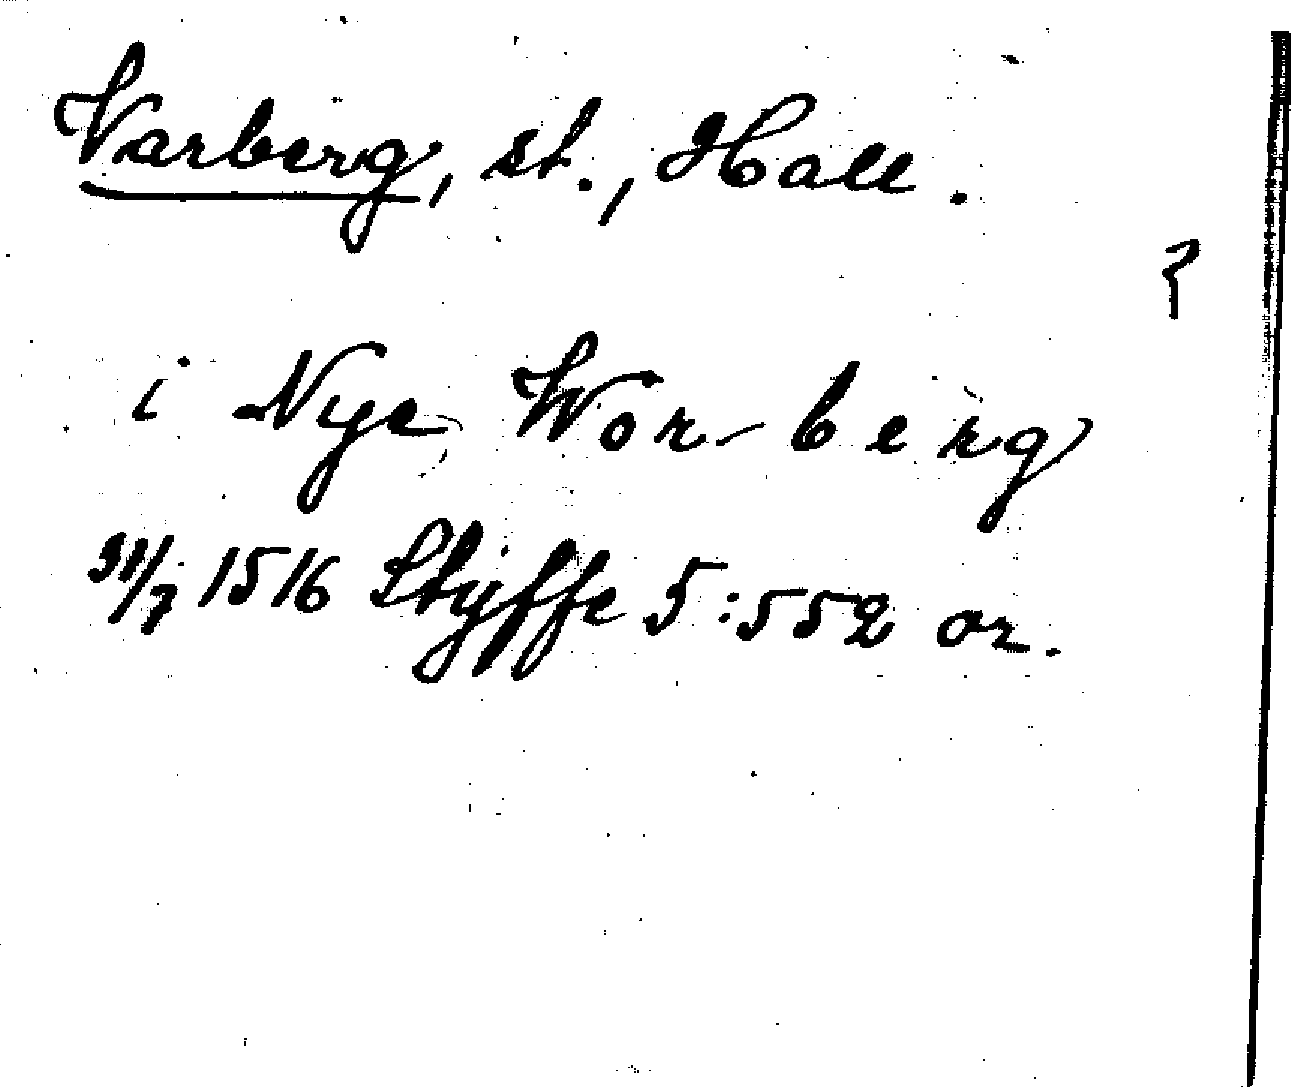 Varberg, st., Hall.
i Nye Wor-berg
31/7 1516 Styffe 5:552 or.